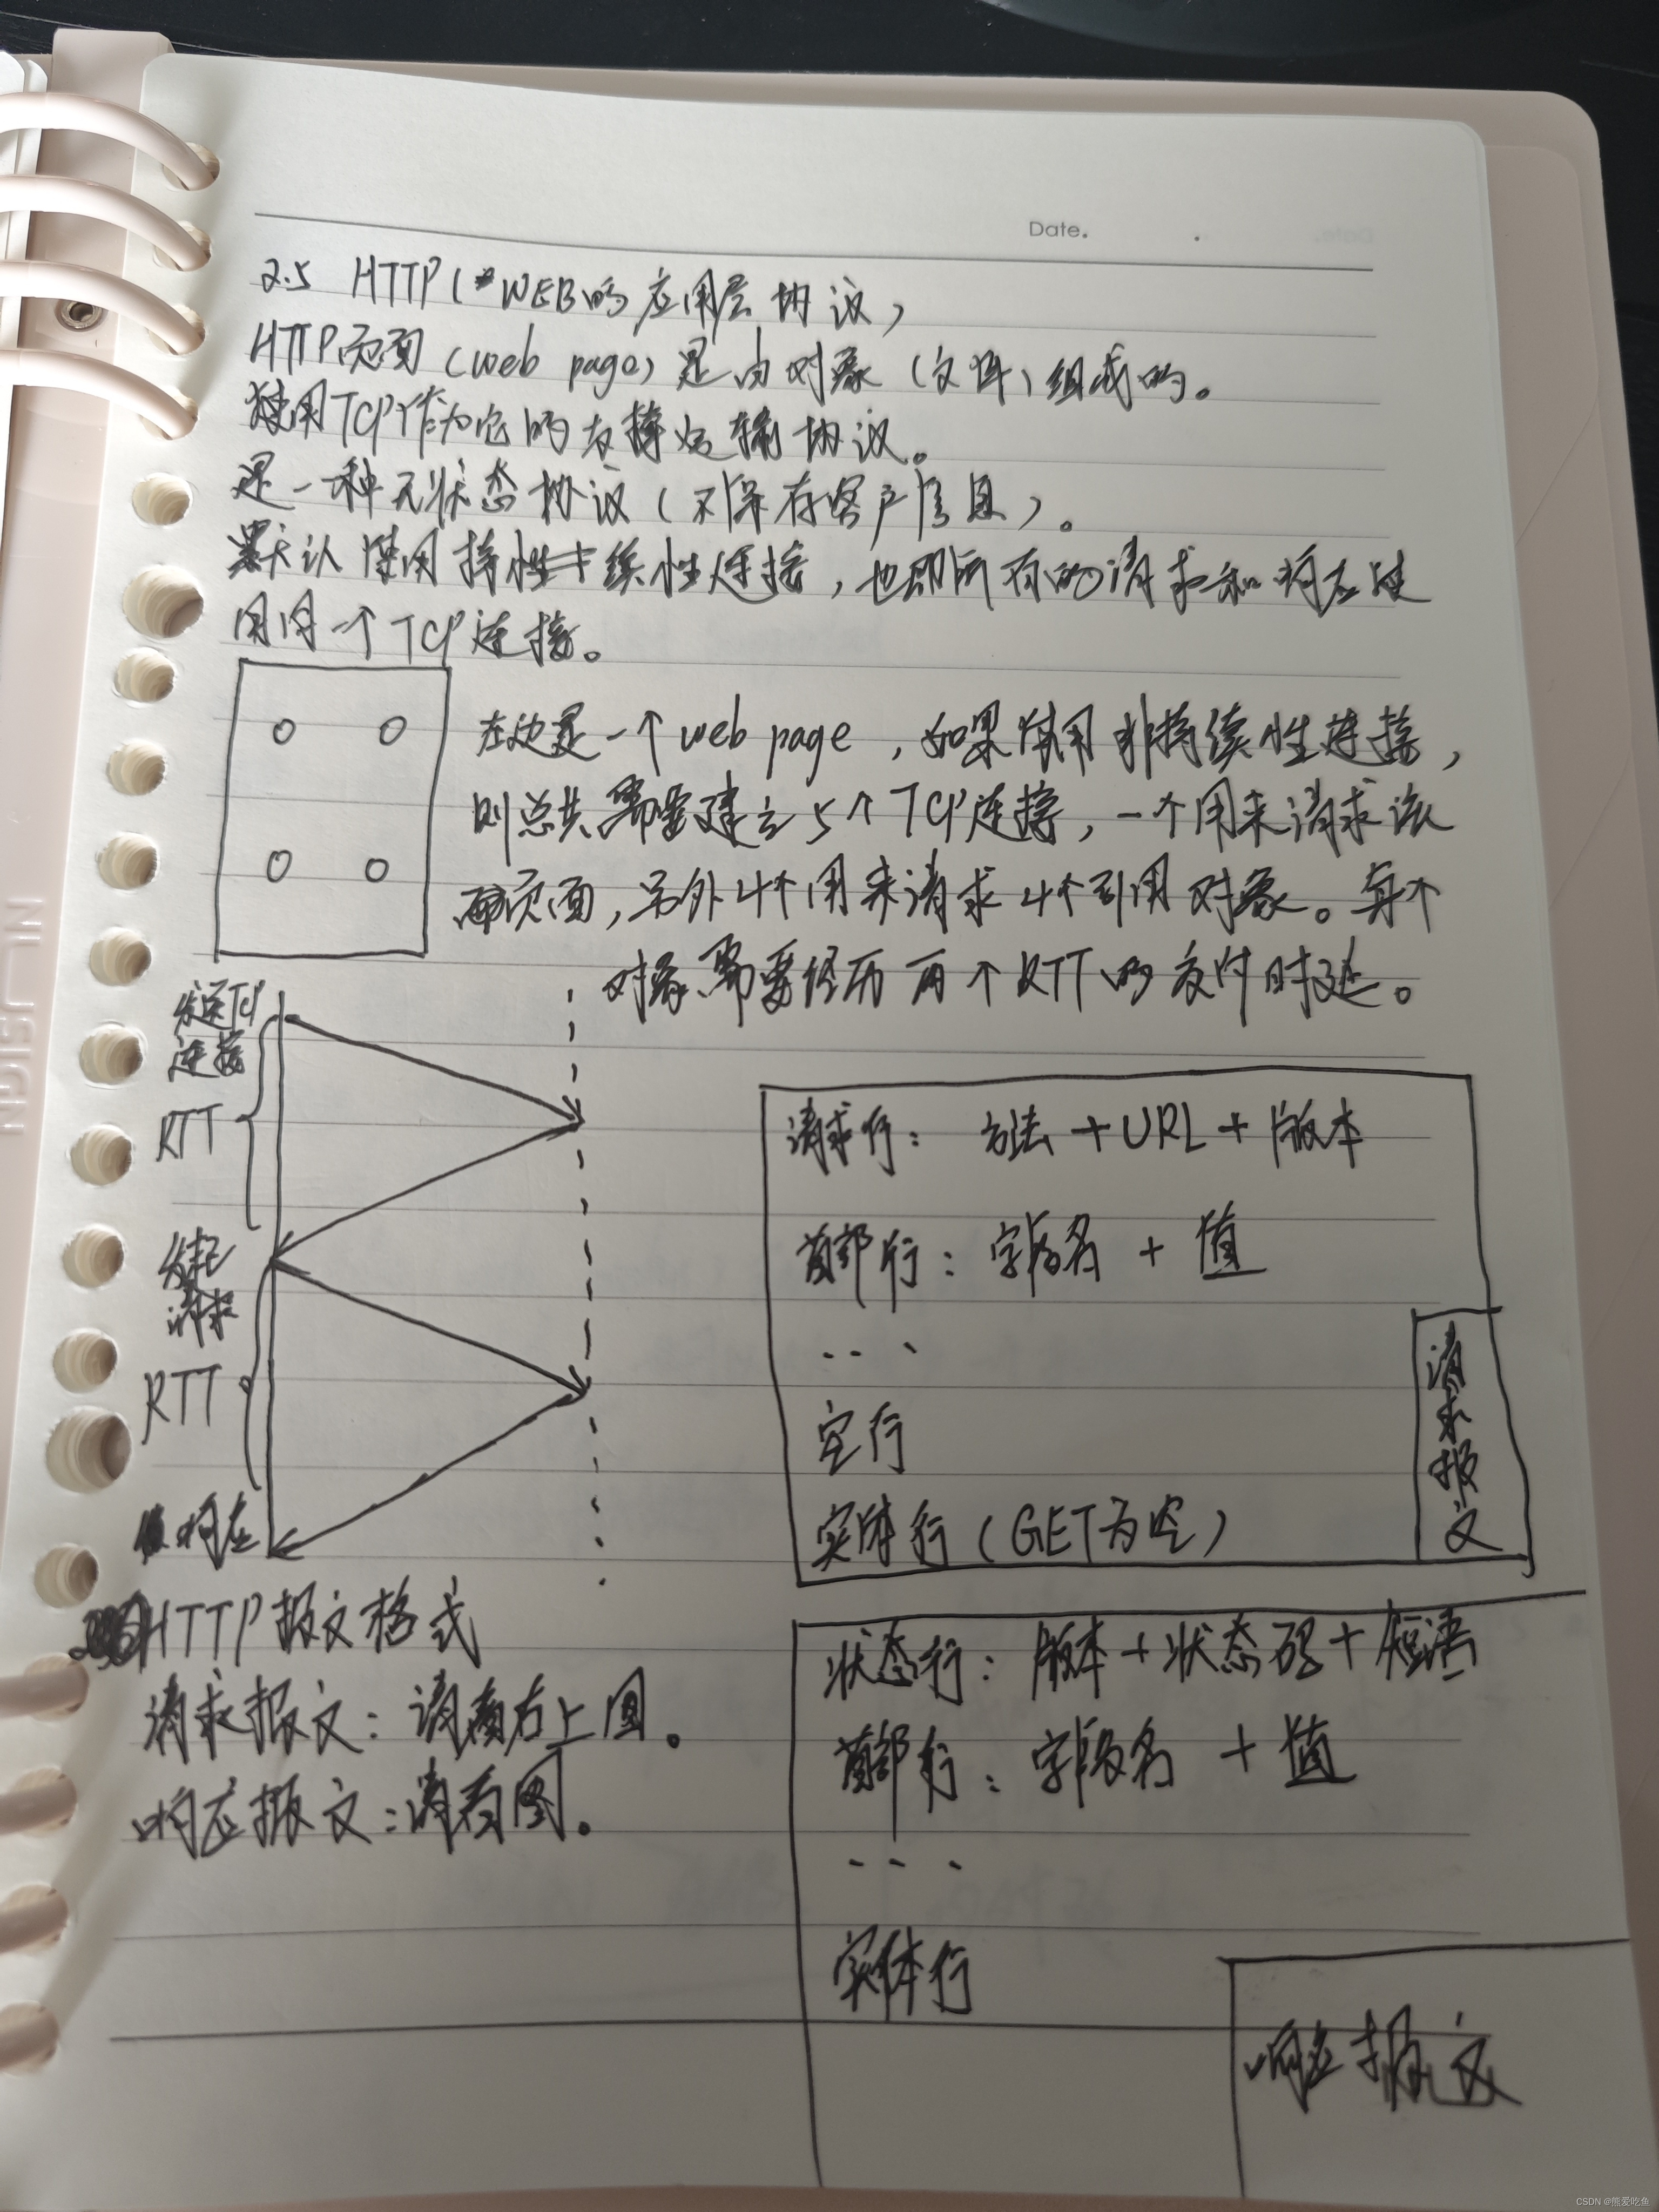 Date.
2.5 HTTP(WEB的应用层协议)
HTTP页面(web page)是由对象(文件)组成的。
使用TCP作为它的支撑运输协议。
是一种无状态协议(不保存客户信息)。
默认使用持续性连接,也即所有的请求和响应使
用同一个TCP连接。
左边是一个web page,如果使用非持续性连接,
则总共需要建立5个TCP连接,一个用来请求该
页面,另外4个用来请求4个引用对象。每个
对象需要经历两个RTT的交付时延。
发送TCP
连接
RTT
发起
请求
RTT
响应
请求行: 方法+URL+版本
首部行: 字段名 + 值
...
空行
实体行(GET为空)
请求报文
HTTP报文格式
请求报文:请看右上图。
响应报文:请看图。
状态行: 版本+状态码+短语
首部行: 字段名 + 值
...
实体行
响应报文
NLJSIGN
CSDN @熊爱吃鱼